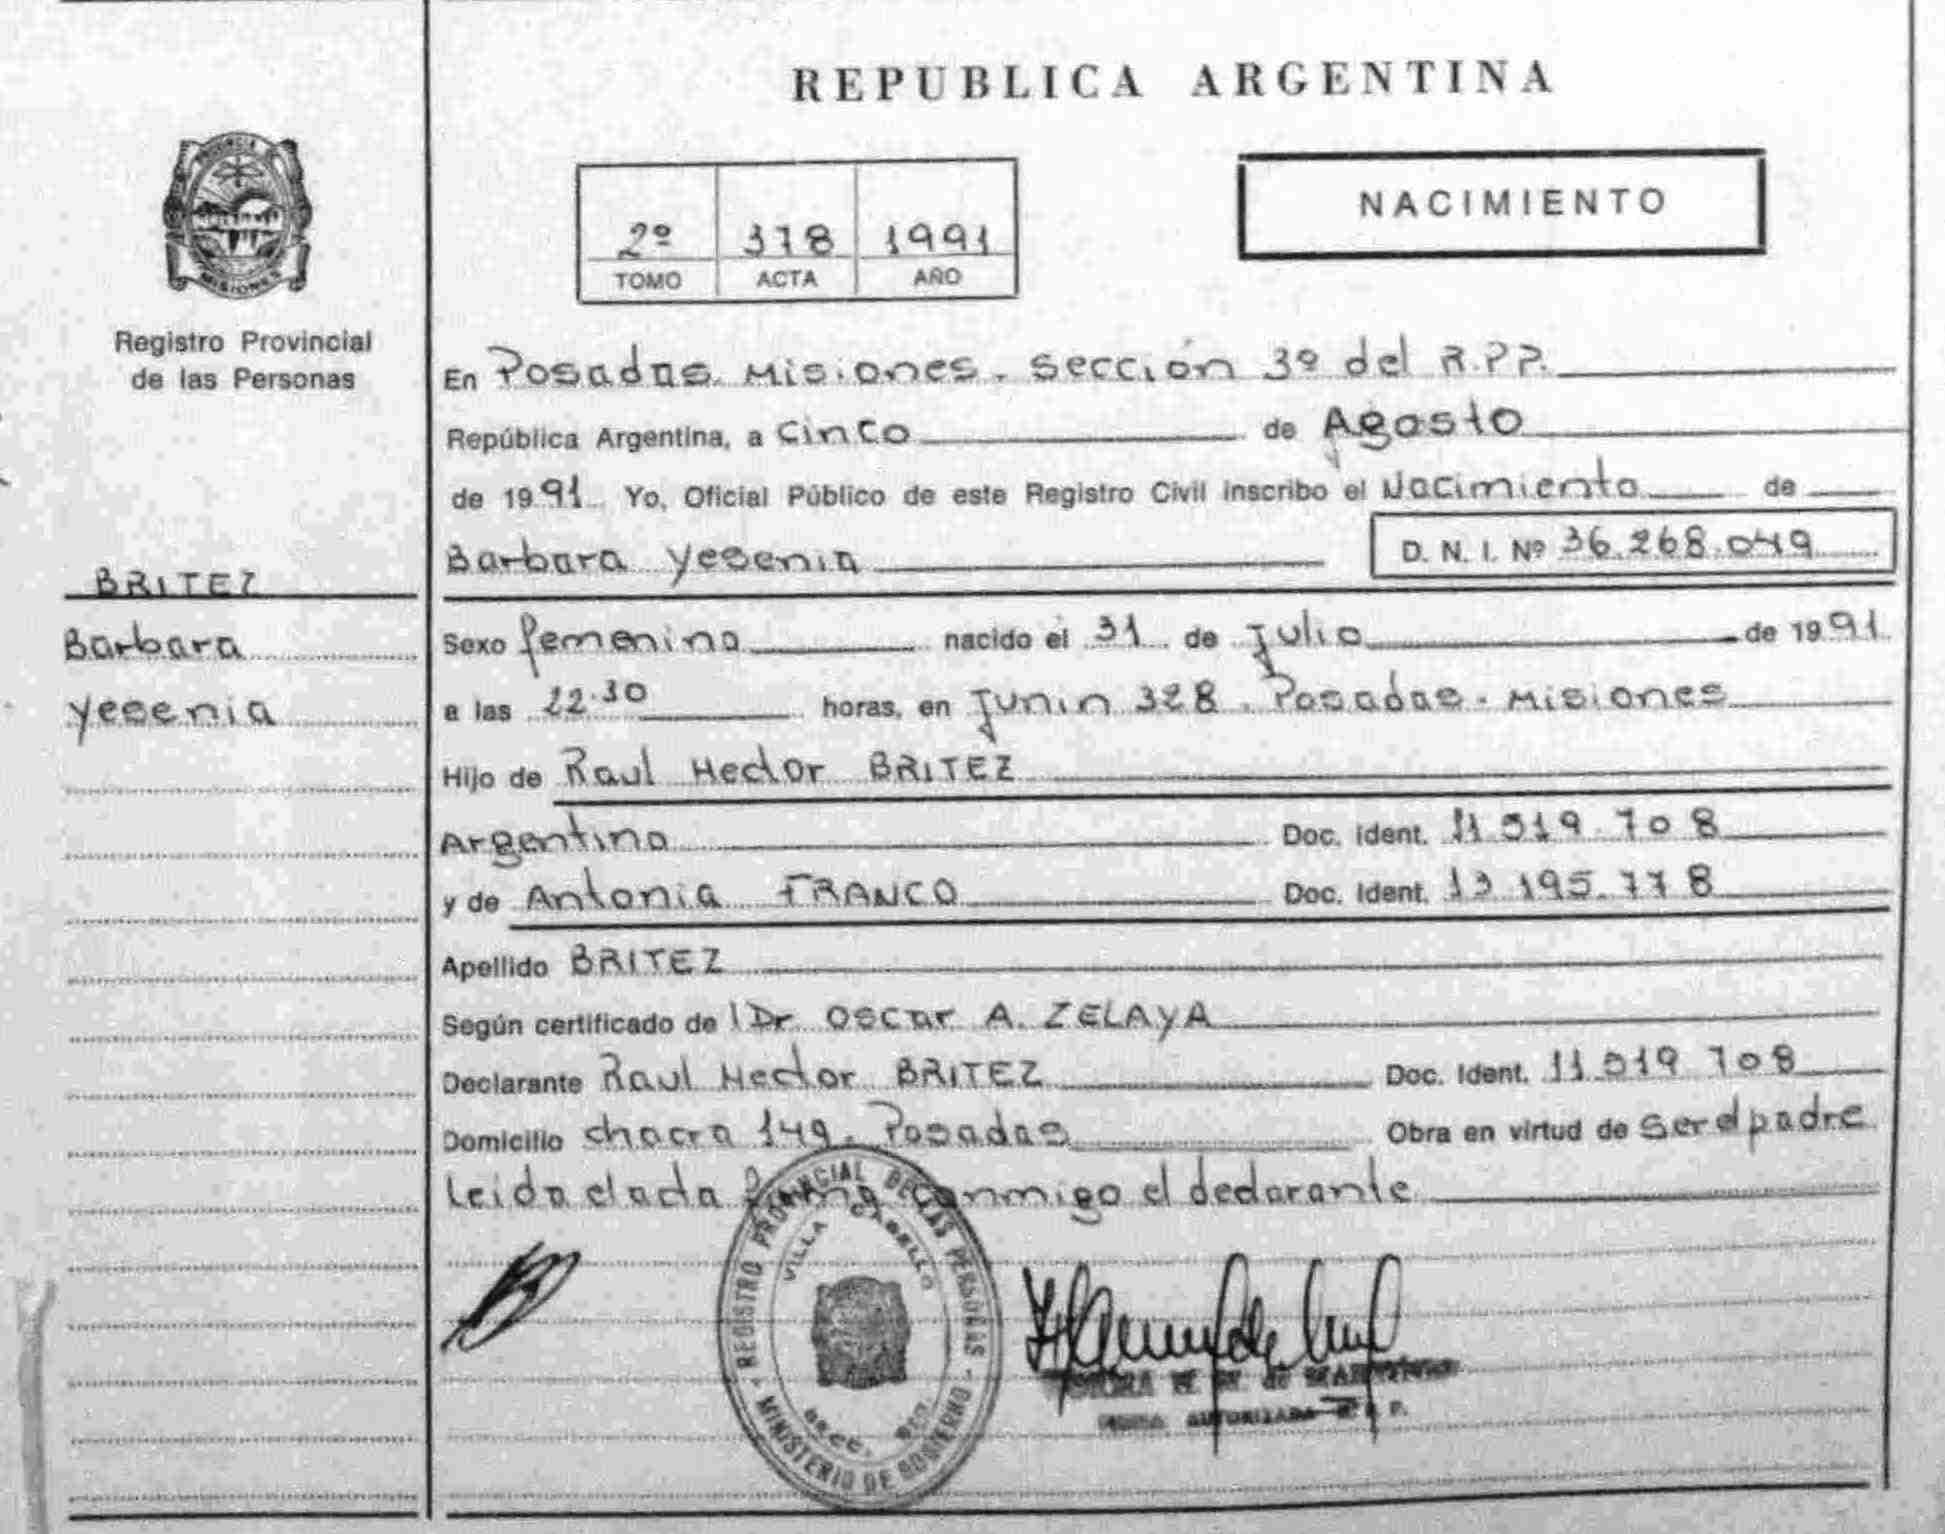 REPUBLICA ARGENTINA
PROVINCIA
MISIONES
Registro Provincial
de las Personas
NACIMIENTO
2º 378 1991
TOMO ACTA AÑO
En Posadas Misiones. sección 3º del R.P.P.
República Argentina, a cinco de Agosto
de 1991 Yo, Oficial Público de este Registro Civil inscribo el Nacimiento de
Barbara Yesenia D. N. I. Nº 36.268.049
BRITEZ
Barbara
Yesenia
Sexo femenino nacido el 31 de Julio de 1991
a las 22.30 horas, en Junin 328. Posadas. Misiones
Hijo de Raul Hector BRITEZ
Argentino Doc. Ident. 11 519 708
y de Antonia FRANCO Doc. Ident. 13 195.778
Apellido BRITEZ
Según certificado de l Dr Oscar A. ZELAYA
Declarante Raul Hector BRITEZ Doc. Ident. 11.519 708
Domicilio chacra 149. Posadas Obra en virtud de ser el padre
Leida el acta firma conmigo el declarante
REGISTRO PROVINCIAL DE LAS PERSONAS
VILLA CABELLO
MINISTERIO DE GOBIERNO
AUTORIZADA